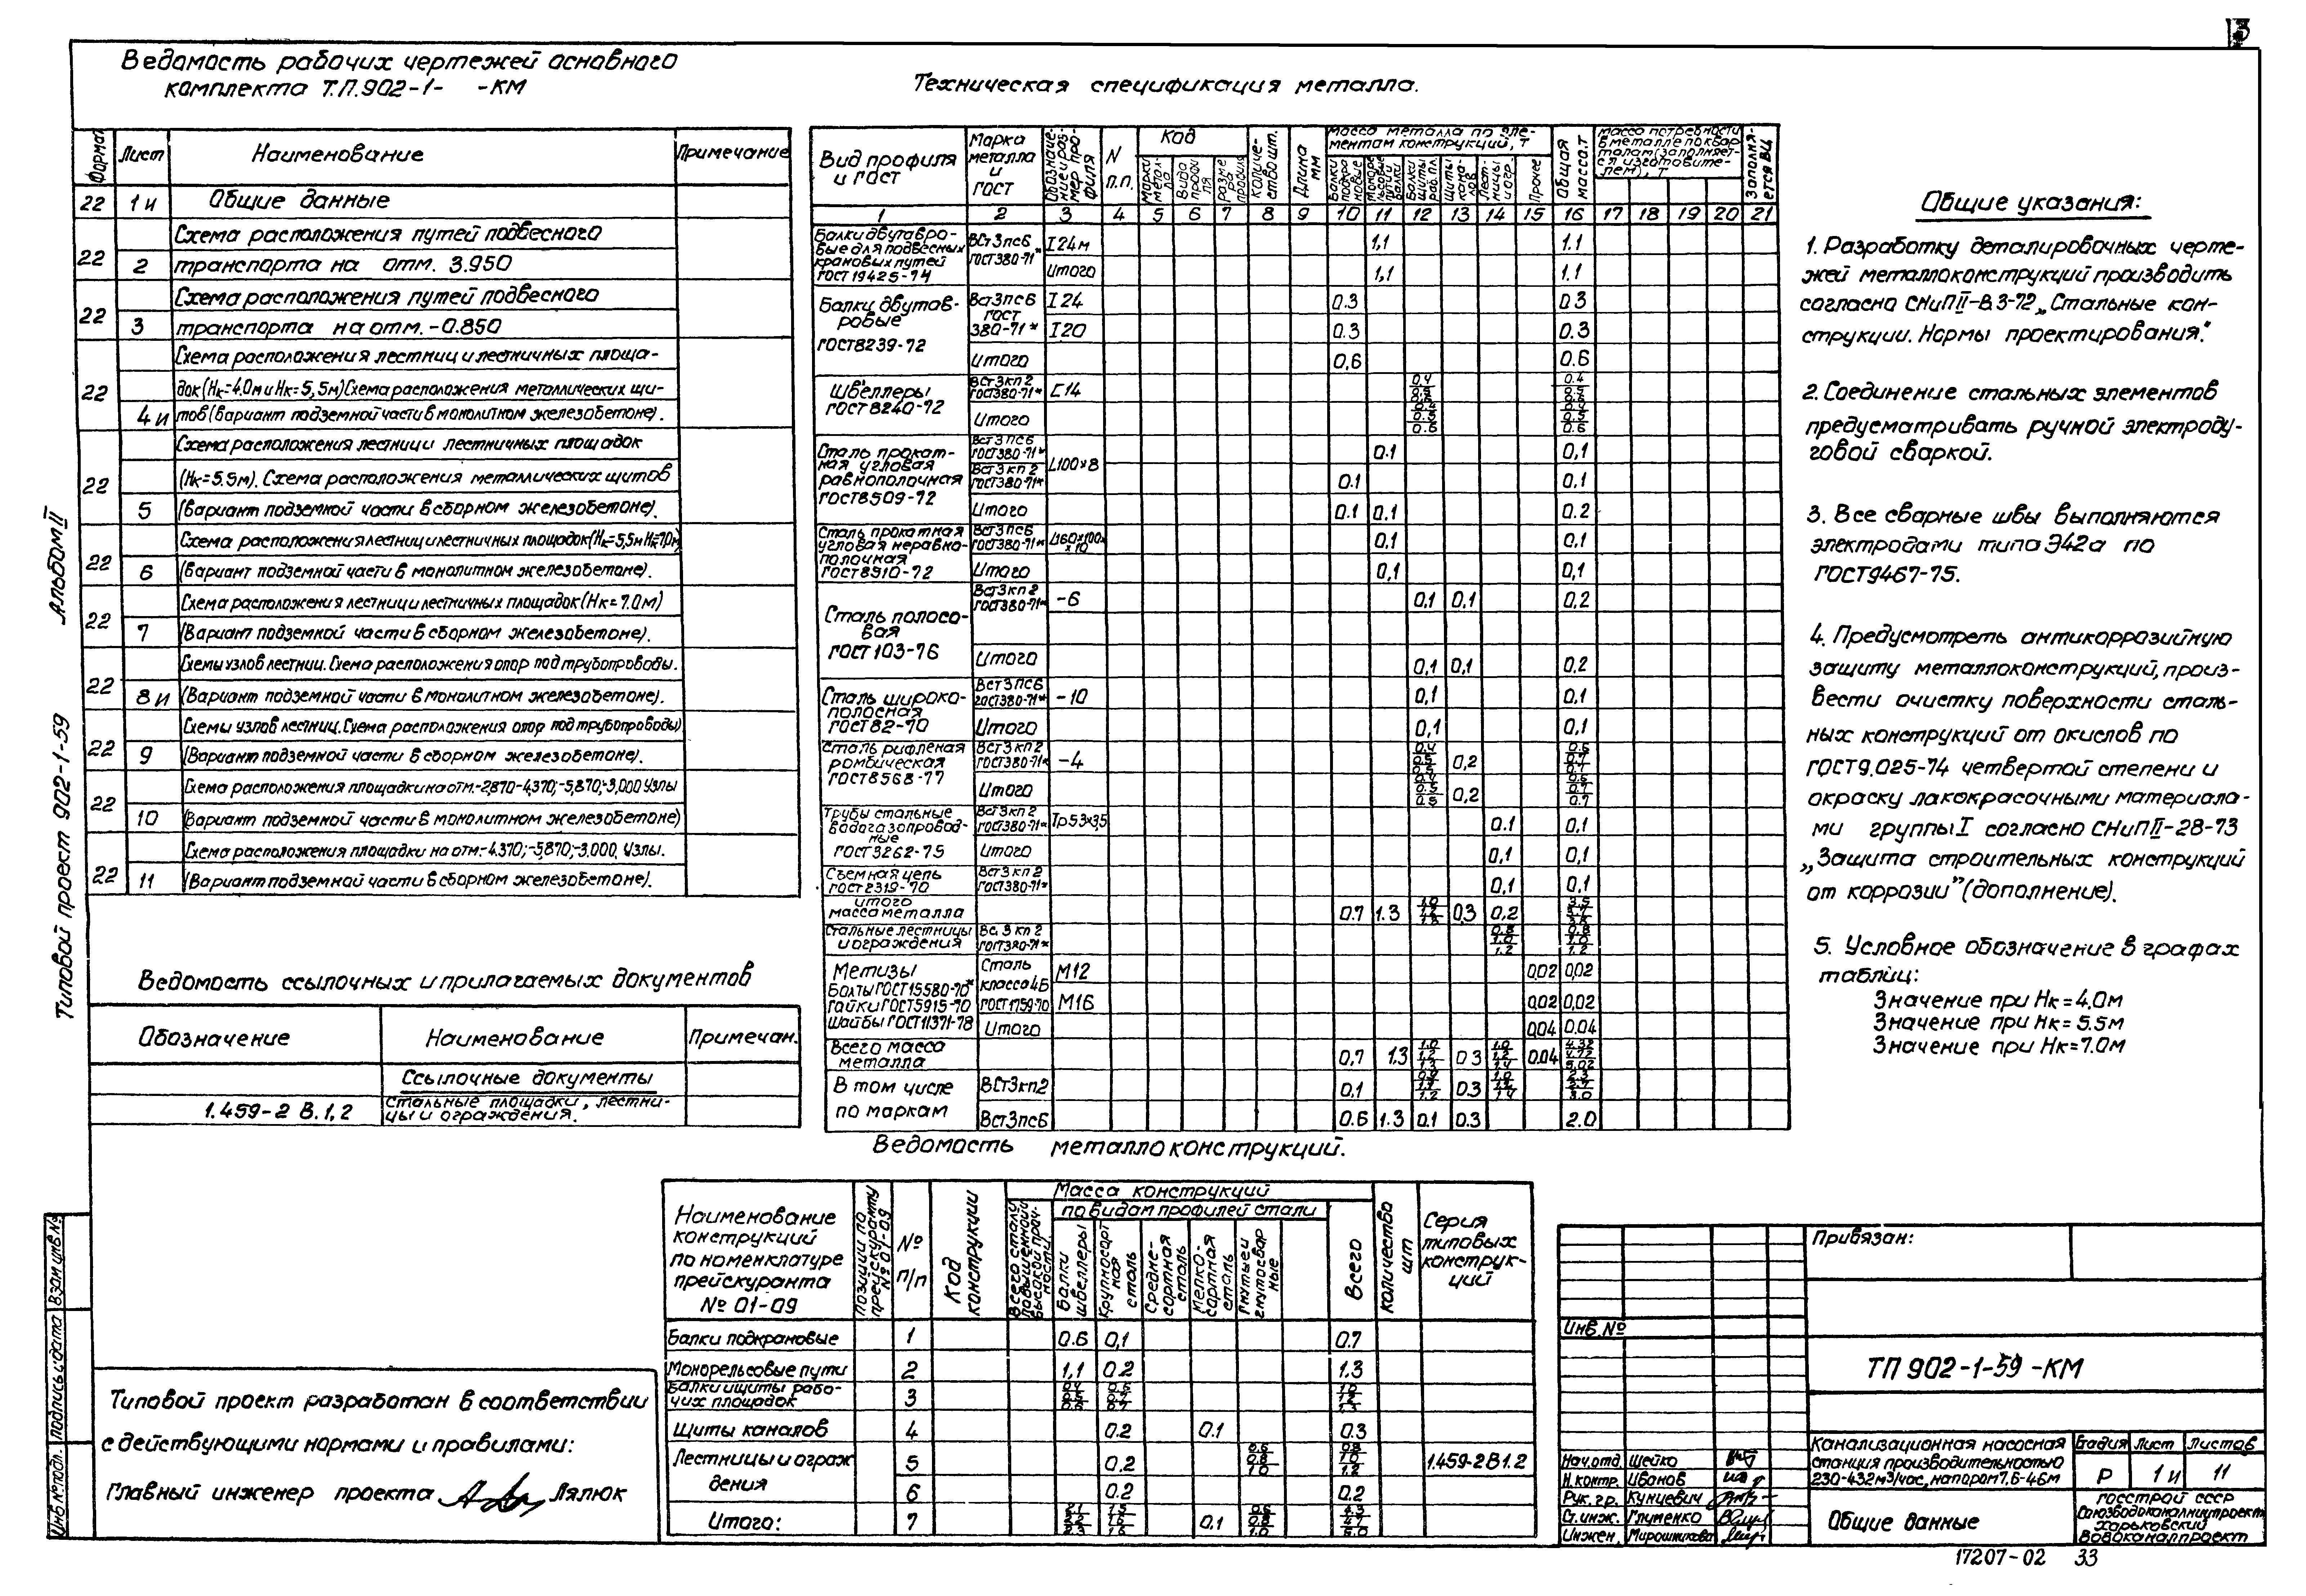 3
Ведомость рабочих чертежей основного
комплекта Т.П.902-1-   -КМ
Формат Лист Наименование Примечание
22 1и Общие данные
Схема расположения путей подвесного
22 2 транспорта на отм. 3.950
Схема расположения путей подвесного
22 3 транспорта на отм. -0.850
Схема расположения лестниц и лестничных площа-
22 док (Нк=4.0м и Нк=5,5м) Схема расположения металлических щи-
4и тов (вариант подземной части в монолитном железобетоне).
Схема расположения лестниц и лестничных площадок
22 (Нк=5.5м). Схема расположения металлических щитов
5 (вариант подземной части в сборном железобетоне).
Схема расположения лестниц и лестничных площадок (Нк=5,5м Нк=7.0м)
22 6 (вариант подземной части в монолитном железобетоне).
Схема расположения лестниц и лестничных площадок (Нк=7.0м)
22 7 (Вариант подземной части в сборном железобетоне).
Схемы узлов лестниц. Схема расположения опор под трубопроводы.
22 8и (Вариант подземной части в монолитном железобетоне).
Схемы узлов лестниц. Схема расположения опор под трубопроводы)
22 9 (Вариант подземной части в сборном железобетоне).
Схема расположения площадки на отм.-2,870-4,370;-5,870;-3,000 Узлы
22 10 (Вариант подземной части в монолитном железобетоне)
Схема расположения площадки на отм.-4.370;-5,870;-3.000. Узлы.
22 11 (Вариант подземной части в сборном железобетоне).
Ведомость ссылочных и прилагаемых документов
Обозначение Наименование Примечан.
Ссылочные документы
1.459-2 В.1,2 Стальные площадки, лестни-
цы и ограждения.
Техническая спецификация металла.
Вид профиля и ГОСТ
Марка металла и ГОСТ
Обозначение и размер профиля
N п.п.
Код
Марка металла
Вида профиля
Размера профиля
Количество шт.
Длина мм
Масса металла по эле-
ментам конструкций, т
Балки подкрановые
Монорельсовые пути балки
Балки щиты раб. пл.
Щиты каналов
Лестницы и огр.
Прочее
Общая масса.т
Масса потребности
в металле по квар-
талам (заполняет-
ся изготовите-
лем), т
Заполняется ВЦ
1 2 3 4 5 6 7 8 9 10 11 12 13 14 15 16 17 18 19 20 21
Балки двутавро-
вые для подвесных
крановых путей
ГОСТ 19425-74
ВСт3пс6 ГОСТ380-71* I24м 1,1 1.1
Итого 1,1 1.1
Балки двутав-
ровые
ГОСТ8239-72
Вст3пс6 ГОСТ 380-71* I24 0.3 0.3
I20 0.3 0.3
Итого 0,6 0.6
Швеллеры
ГОСТ8240-72
ВСт3кп2 ГОСТ380-71* [14 0.4 0.5 0.6 0.4 0.5 0.6
Итого 0.4 0.5 0.6 0.4 0.5 0.6
Сталь прокат-
ная угловая
равнополочная
ГОСТ8509-72
Вст3пс6 ГОСТ380-71* L100×8 0.1 0,1
Вст3кп2 ГОСТ380-71* 0.1 0.1
Итого 0.1 0,1 0.2
Сталь прокатная
угловая неравно-
полочная
ГОСТ8510-72
Вст3пс6 ГОСТ380-71* L160×100××10 0,1 0.1
Итого 0,1 0,1
Сталь полосо-
вая
ГОСТ103-76
Вст3кп2 ГОСТ380-71* -6 0,1 0,1 0,2
Итого 0,1 0,1 0.2
Сталь широко-
полосная
ГОСТ82-70
Вст3пс6 ГОСТ380-71* -10 0,1 0,1
Итого 0,1 0,1
Сталь рифленая
ромбическая
ГОСТ8568-77
Вст3кп2 ГОСТ380-71* -4 0.4 0.5 0.5 0,2 0.6 0.7 0.7
Итого 0.4 0.5 0.5 0,2 0.6 0.7 0.7
Трубы стальные
водогазопровод-
ные
ГОСТ3262-75
Вст3кп2 ГОСТ380-71* Тр53×3,5 0.1 0,1
Итого 0,1 0,1
Съемная цепь
ГОСТ2319-70
Вст3кп2 ГОСТ380-71* 0,1 0,1
Итого
масса металла 0.7 1.3 1.0 1.2 1.3 0,3 0,2
Стальные лестницы
и ограждения
Вс.3кп2 ГОСТ380-71* 0.8 1.0 1.2 0.8 1.0 1.2
Метизы
Болты ГОСТ15580-70*
Гайки ГОСТ5915-70
Шайбы ГОСТ11371-78
Сталь класса4Б ГОСТ1759-70
М12 0,02 0,02
М16 0,02 0,02
Итого 0,04 0.04
Всего масса
металла 0,7 1.3 1.0 1.2 1.3 0.3 1.0 1.2 1.4 0.04 4.32 4.72 5.02
В том числе
по маркам
ВСт3кп2 0,1 0.9 1.1 1.2 0.3 1.0 1.2 1.4 2.3 2.7 3.0
Вст3пс6 0.6 1.3 0.1 0.3 2.0
Общие указания:
1. Разработку деталировочных черте-
жей металлоконструкций производить
согласно СНиПII-В.3-72 „Стальные кон-
струкции. Нормы проектирования".
2. Соединение стальных элементов
предусматривать ручной электроду-
говой сваркой.
3. Все сварные швы выполняются
электродами типа Э42а по
ГОСТ9467-75.
4. Предусмотреть антикоррозийную
защиту металлоконструкций, произ-
вести очистку поверхности сталь-
ных конструкций от окислов по
ГОСТ9.025-74 четвертой степени и
окраску лакокрасочными материала-
ми группы I согласно СНиПII-28-73
„Защита строительных конструкций
от коррозии" (дополнение).
5. Условное обозначение в графах
таблиц:
Значение при Нк=4.0м
Значение при Нк=5.5м
Значение при Нк=7.0м
Ведомость металлоконструкций.
Наименование
конструкций
по номенклатуре
прейскуранта
№ 01-09
Позиции по прейскуранту № 01-09
№ п/п
Код конструкции
Масса конструкций
по видам профилей стали
Балки швеллеры
Крупносортная сталь
Средне-сортная сталь
Мелко-сортная сталь
Всего
Количество шт
Серия
типовых
конструк-
ций
Балки подкрановые 1 0.6 0,1 0.7
Монорельсовые пути 2 1,1 0.2 1.3
Балки и щиты рабо-
чих площадок 3 0.4 0.5 0.6 0.6 0.7 0.7 1.0 1.2 1.3
Щиты каналов 4 0.2 0.1 0.3
Лестницы и ограж
дения
5 0.2 0.6 0.8 1.0 0.8 1.0 1.2 1.459-2В1.2
6 0.2 0.2
Итого: 7 2.1 2.2 2.3 0.1 0.6 0.8 1.0
Типовой проект разработан в соответствии
с действующими нормами и правилами:
Главный инженер проекта Лялюк
Типовой проект 902-1-59 Альбом II
Инв.№подл. Подпись и дата Взам инв №
Привязан:
Инв.№
ТП 902-1-59 -КМ
Нач.отд. Шейко
Н.контр. Иванов
Рук.гр. Кунцевич
Ст.инж. Глуменко
Инжен. Мирошникова
Канализационная насосная
станция производительностью
230-432м³/час, напором 7,6-46м
Стадия Лист Листов
Р 1и 11
Общие данные
Госстрой СССР
Союзводоканалниипроект
Харьковский
Водоканалпроект
17207-02 33